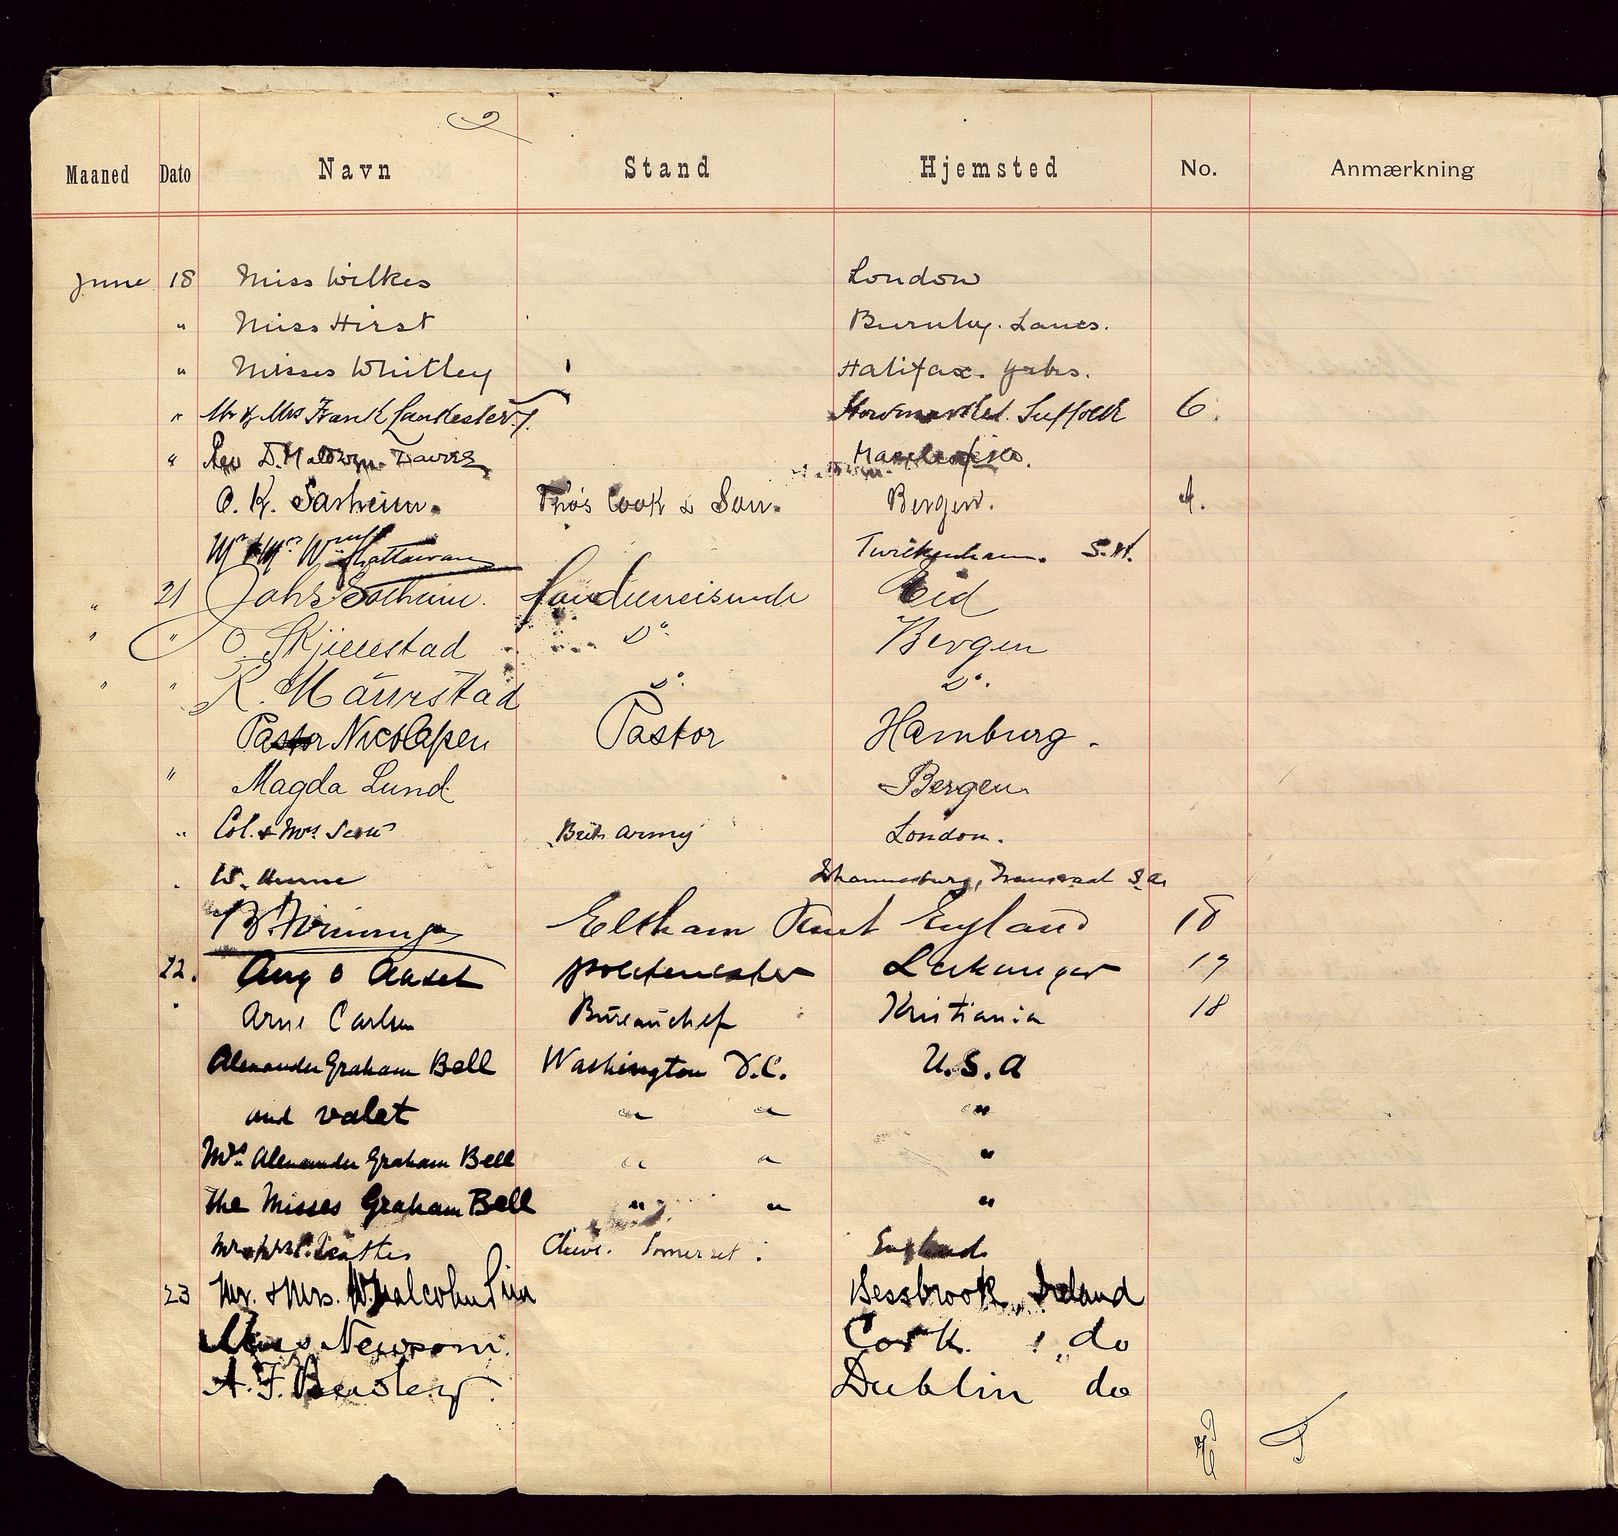 Maaned Dato Navn Stand Hjemsted No. Anmærkning
June 18 Miss Wilkes London
" Miss Hirst Burnley. Lancs.
" Misses Whitley Halifax. Yorks.
" Mr & Mrs Frank Lankester Stowmarket. Suffolk 6.
" Rev D. Davies
O. K. Sarheim. Thos Cook & Son. Bergen. 4.
Mr & Mrs Wm Twickenham.
" 21 Johs Solheim. Handelsreisende Eid
" " O. Skjerestad Do. Bergen
" " R. Maurstad Do. Do.
Pastor Nicolassen Pastor Hamburg.
" Magda Lund Bergen
" Col. & Mrs Brit. Army London.
W. Johannesburg, Transvaal S.A.
Eltham Kent England 18
22. Aug O Aaset politimester Leikanger 19
" Arne Carlsen Bureauchef Kristiania 18
Alexander Graham Bell Washington D.C. U.S.A
and valet " " "
Mrs. Alexander Graham Bell " " "
The Misses Graham Bell " " "
Mr & Mrs. Cleve. Somerset. England
23 Mr. & Mrs. W. Malcolm Pim Bessbrook, Ireland
Miss Newsom. Cork. " do
A. F. Dublin do